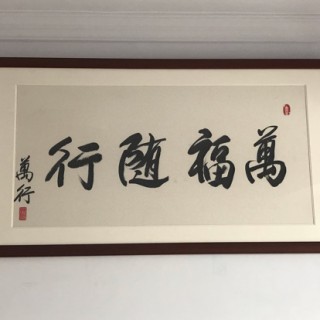 萬福随行
萬行